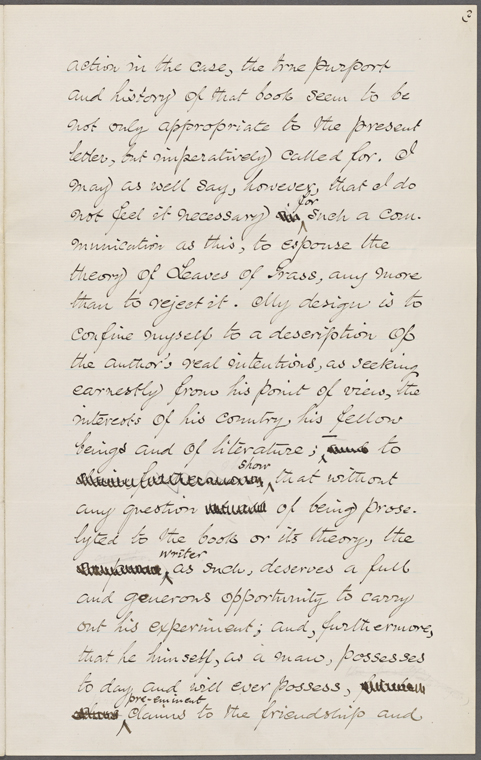 3
action in the case, the true purport
and history of that book seem to be
not only appropriate to the present
letter, but imperatively called for. I
may as well say, however, that I do
not feel it necessary for such a com-
munication as this, to espouse the
theory of Leaves of Grass, any more
than to reject it. My design is to
confine myself to a description of
the author's real intentions, as seeking
earnestly from his point of view, the
interests of his country, his fellow
beings and of literature; to
show that without
any question of being prose-
lyted to the book or its theory, the
writer, as such, deserves a full
and generous opportunity to carry
out his experiment; and, furthermore,
that he himself, as a man, possesses
to day and will ever possess,
pre-eminent claims to the friendship and